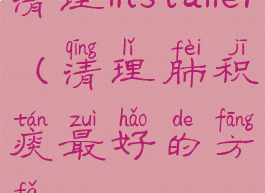 清理installer
qīng lǐ fèi jī
(清理肺积
tán zuì hǎo de fāng
痰最好的方
fǎ